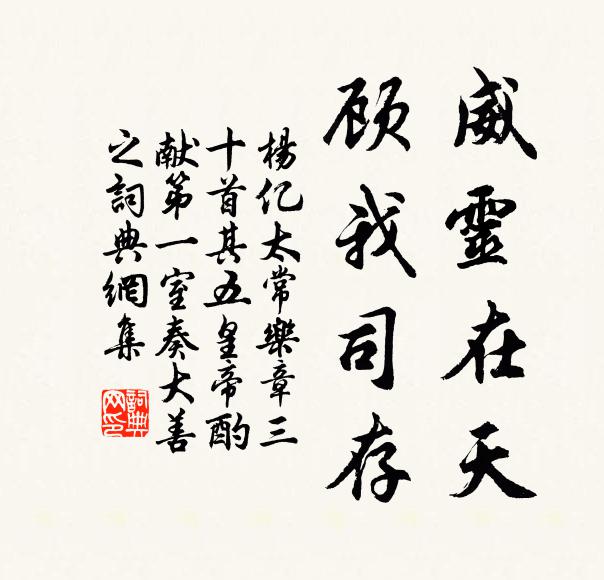 威靈在天
顾我司存
楊亿太常樂章三
十首其五皇帝酌
献第一室奏大善
之詞典網集
詞典网印